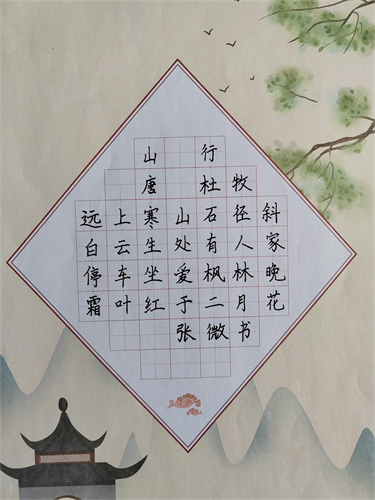 山行
唐 杜牧
远上寒山石径斜
白云生处有人家
停车坐爱枫林晚
霜叶红于二月花
张微书